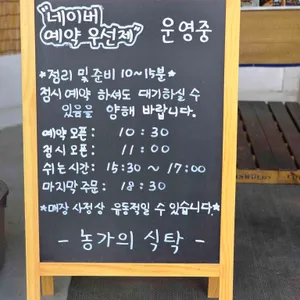 "네이버
예약 우선제" 운영중
*정리 및 준비 10~15분*
정시 예약 하셔도 대기하실 수
있음을 양해 바랍니다.
예약 오픈: 10:30
정시 오픈: 11:00
쉬는시간: 15:30 ~ 17:00
마지막 주문: 18:30
*매장 사정상 유동적일 수 있습니다*
- 농가의 식탁 -